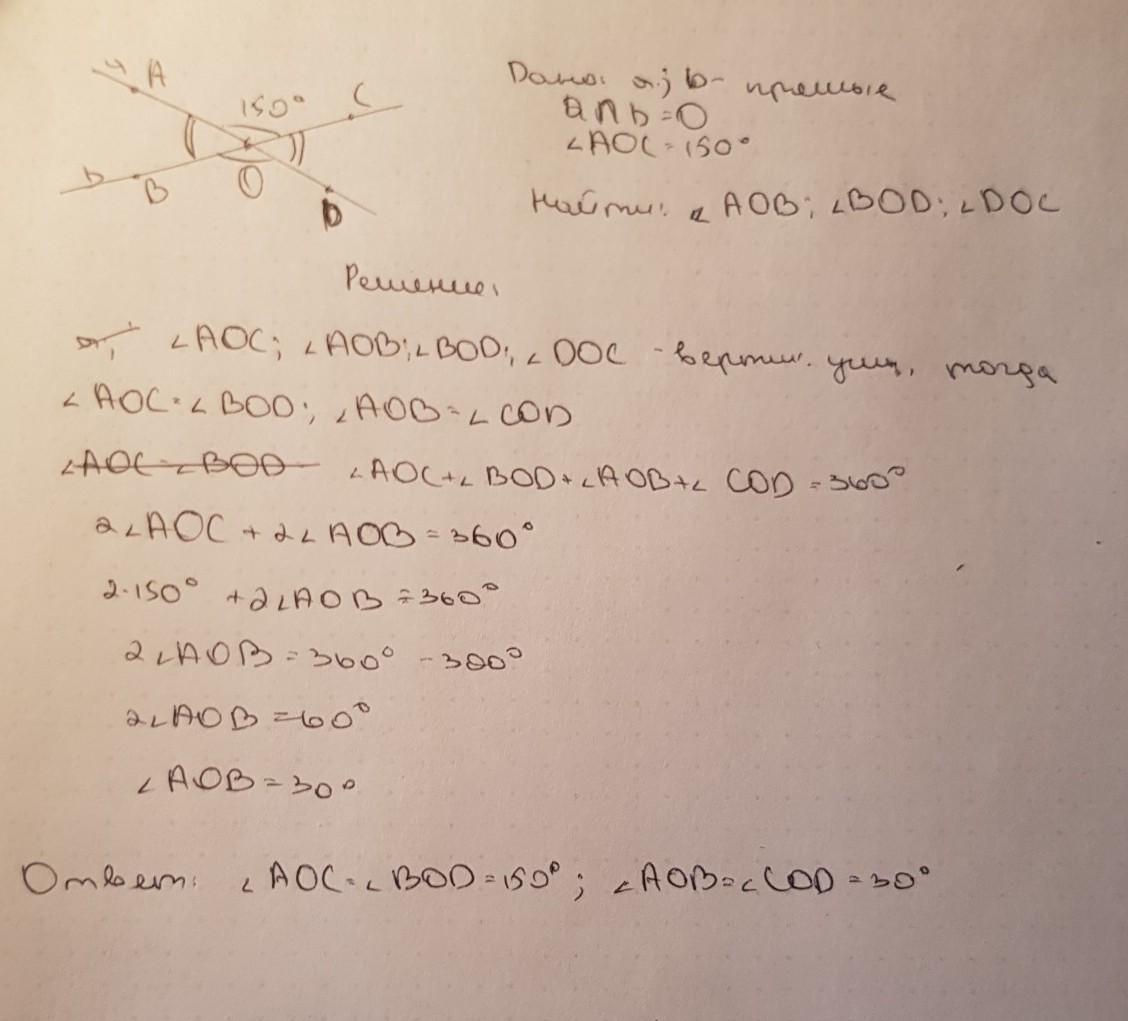 a A
150°
C
b B O
D
Дано: a; b - прямые
a∩b=O
∠AOC=150°
Найти: ∠AOB; ∠BOD; ∠DOC
Решение:
∠AOC; ∠AOB; ∠BOD; ∠DOC - вертик. углы, тогда
∠AOC=∠BOD; ∠AOB=∠COD
∠AOC=∠BOD ∠AOC+∠BOD+∠AOB+∠COD=360°
2∠AOC+2∠AOB=360°
2·150°+2∠AOB=360°
2∠AOB=360°-300°
2∠AOB=60°
∠AOB=30°
Ответ: ∠AOC=∠BOD=150°; ∠AOB=∠COD=30°